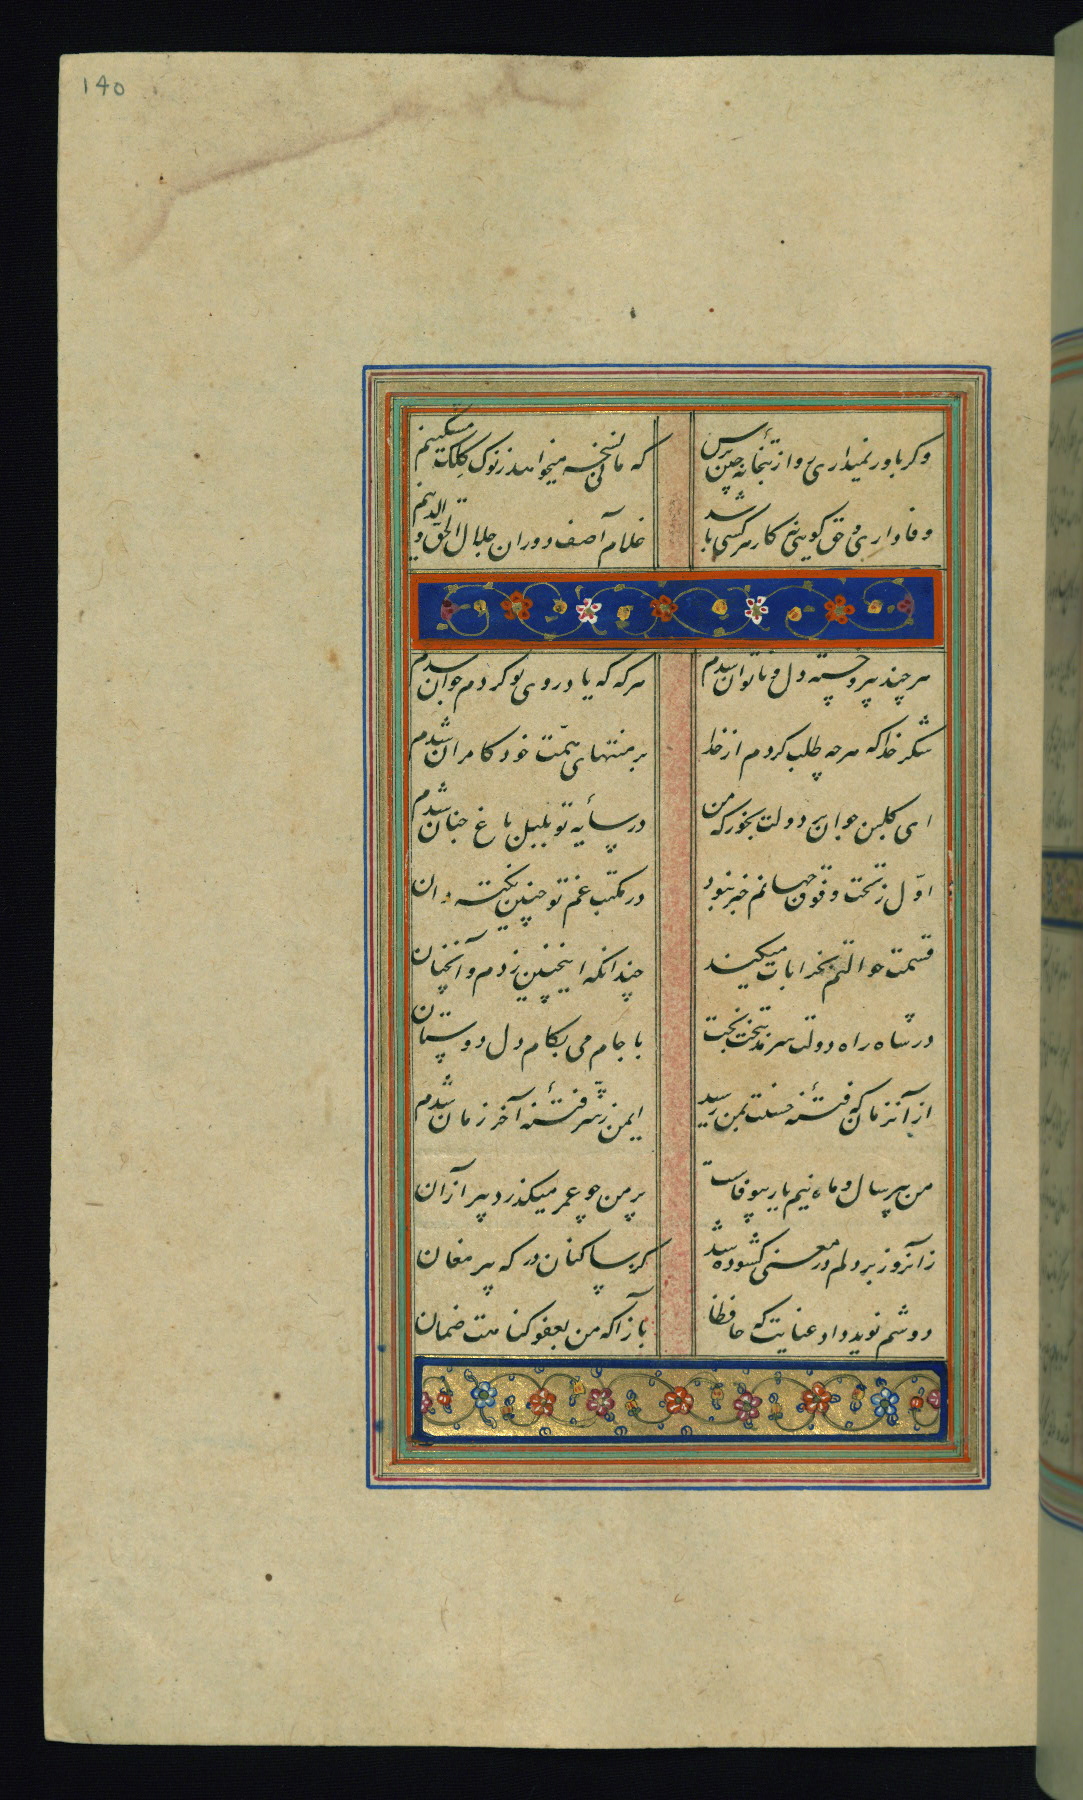 140
وگر باور نمیداری رو از بتخانهٔ چین پرس که مانی نسخه میخواهد ز نوک کلک مشکینم
وفاداری و حق گویی نه کار هر کسی باشد غلام آصف دوران جلال الحق و الدینم
هر چند پیر و خسته دل و ناتوان شدم هر که که یاد روی تو کردم جوان شدم
شکر خدا که هر چه طلب کردم از خدا بر منتهای همّت خود کامران شدم
ای گلبن جوان بر دولت بخور که من در سایهٔ تو بلبل باغ جنان شدم
اوّل ز تحت و فوق جهانم خبر نبود در مکتب غم تو چنین نکته دان
قسمت حوالتم بخرابات میکند چندانکه اینچنین زدم و آنچنان
در شاه راه دولت سرمد بتخت بخت با جام می بکام دل دوستان
از آنزمان که فتنهٔ حسنت بمن رسید ایمن ز شرّ فتنهٔ آخر زمان شدم
من پیر سال و ماه نیم یار بیوفاست بر من چو عمر میگذرد پیر از آن
زآنروز بر دلم در معنی گشوده شد کز ساکنان درکه پیر مغان
دوشم نوید داد عنایت که حافظا بازآ که من بعفو گناهت ضمان